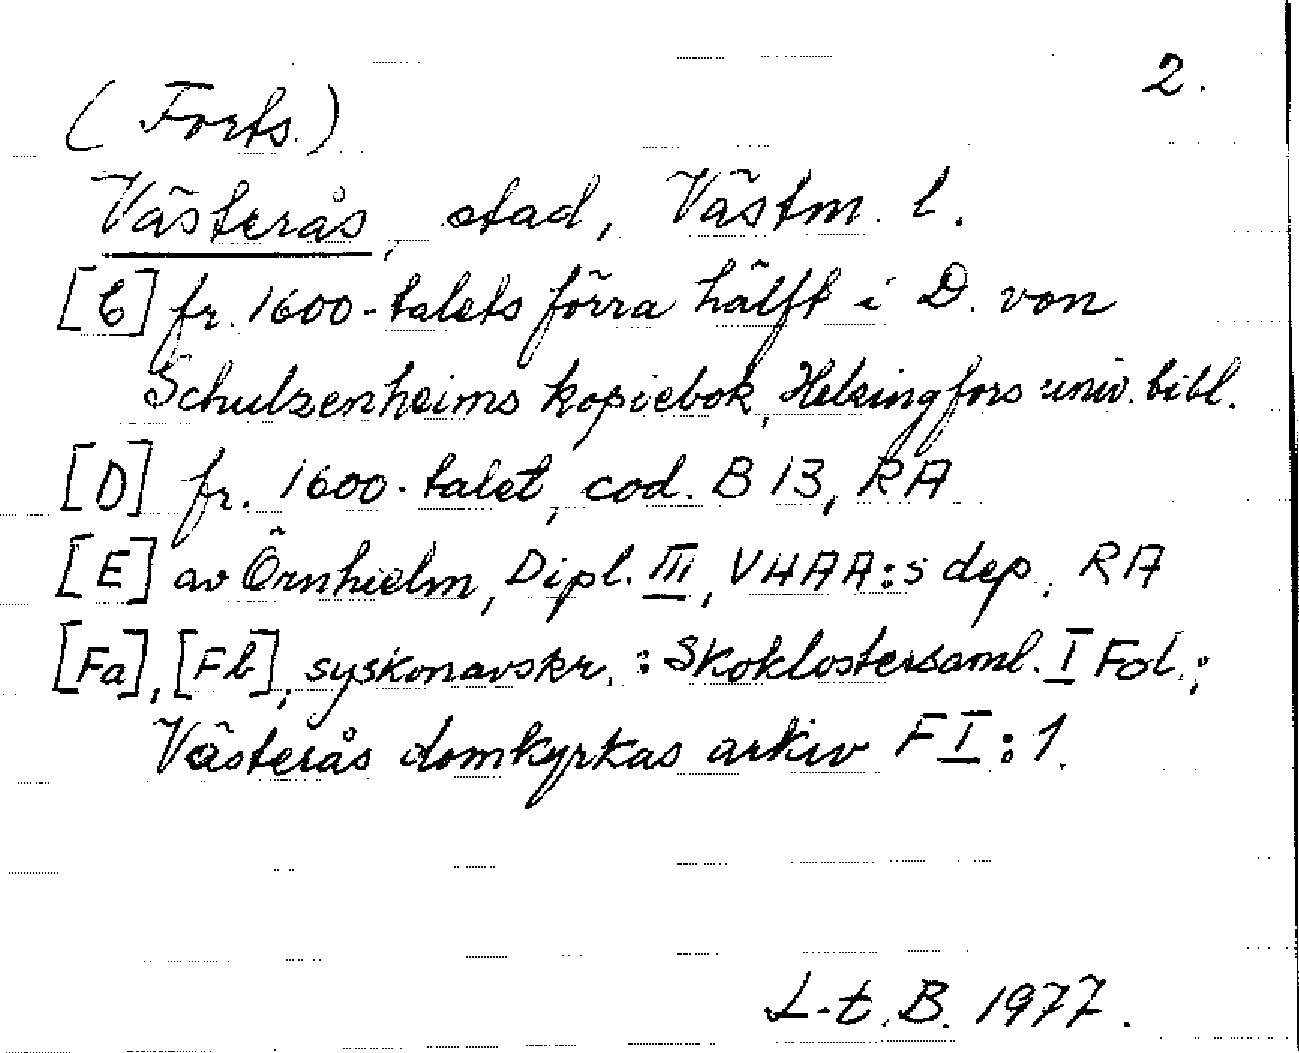 2.
(Forts.)
Västerås, stad, Västm. l.
[C] fr. 1600-talets förra hälft i D. von
Schulzenheims kopiebok, Helsingfors univ. bibl.
[D] fr. 1600-talet, cod. B 13, RA
[E] av Örnhielm, Dipl. III, VHAA:s dep., RA
[Fa], [Fb], syskonavskr.: Skoklostersaml. I Fol.;
Västerås domkyrkas arkiv F I:1.
L-t. B. 1977.